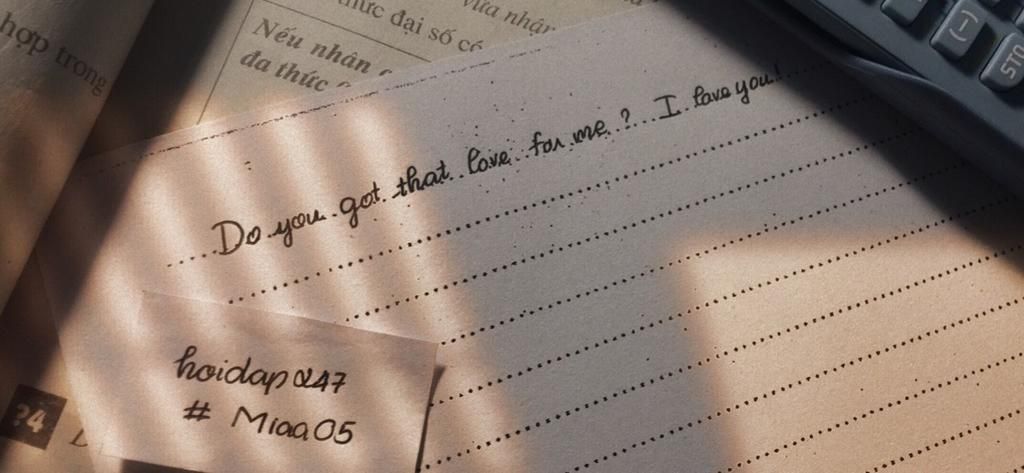 hợp trong
thức đại số có
vừa nhận
Nếu nhân
đa thức
Do you got that love for me? I love you!
hoidap247
# Miaa05
?4
STO